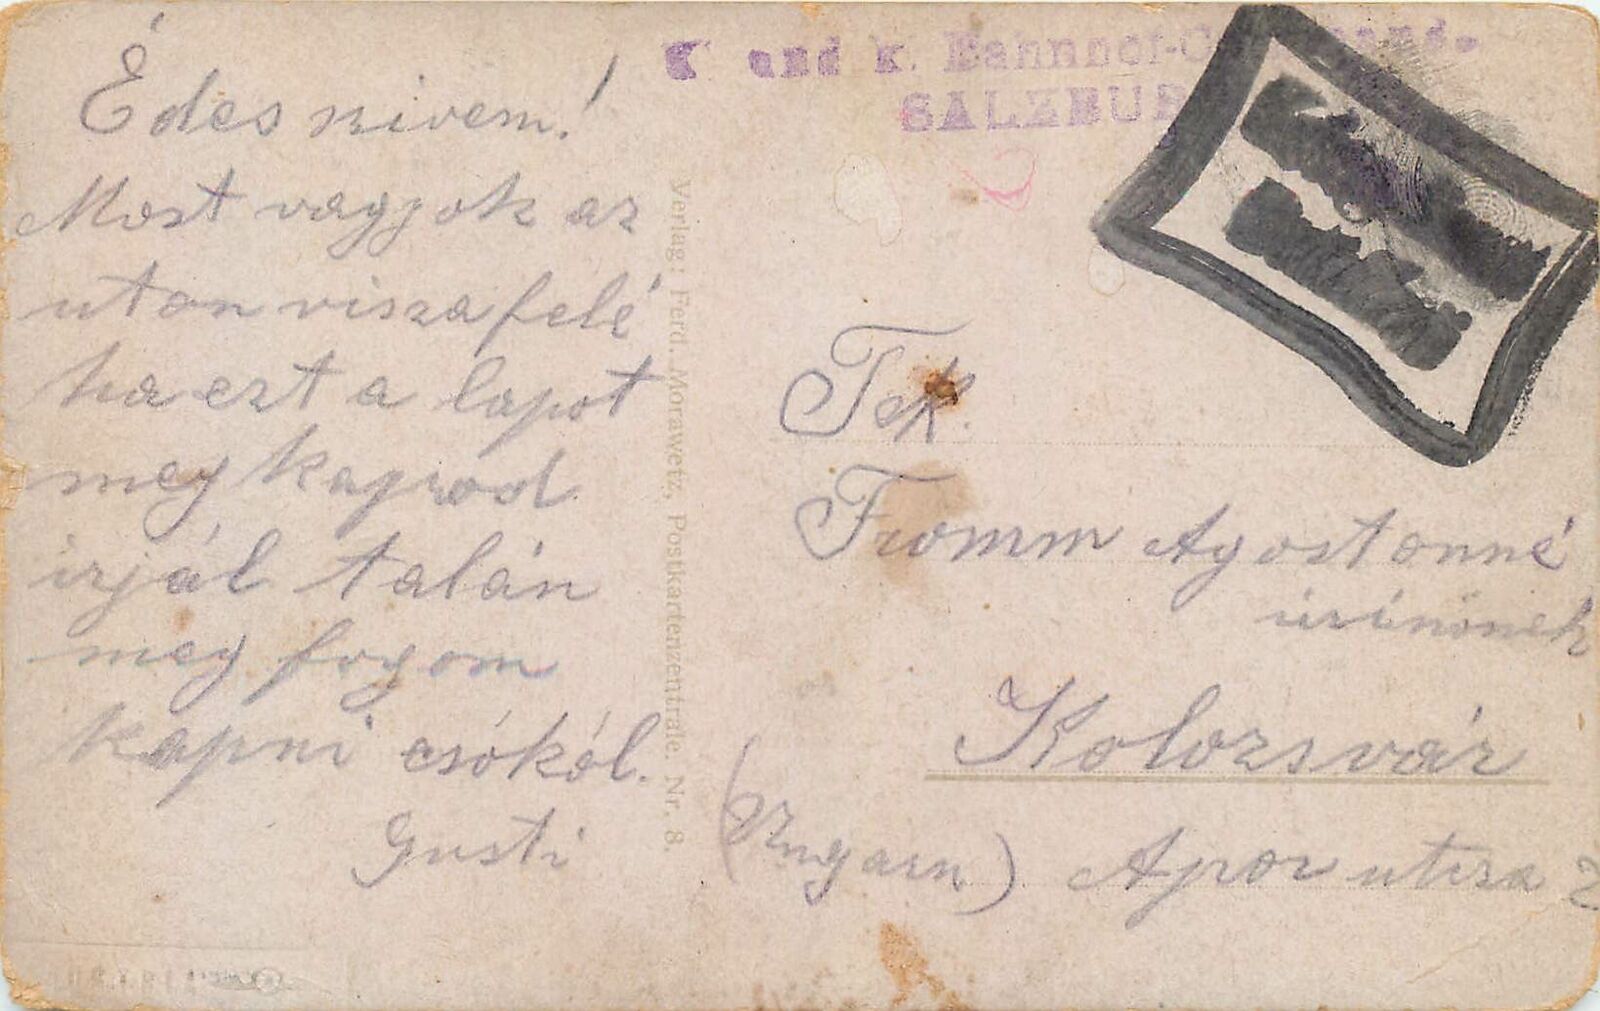 Édes nivem!
Most vagyok az
uton viszafelé
ha ezt a lapot
meg kapod
irjál talán
meg fogom
kapni csókól.
Gusti
Verlag: Ferd. Morawetz, Postkartenzentrale. Nr. 8.
K und k. Bahnhof-
SALZBUR
Tek.
Fromm Agostonné
úrinőnek
Kolozsvár
(Ungarn) Apor utcza 2